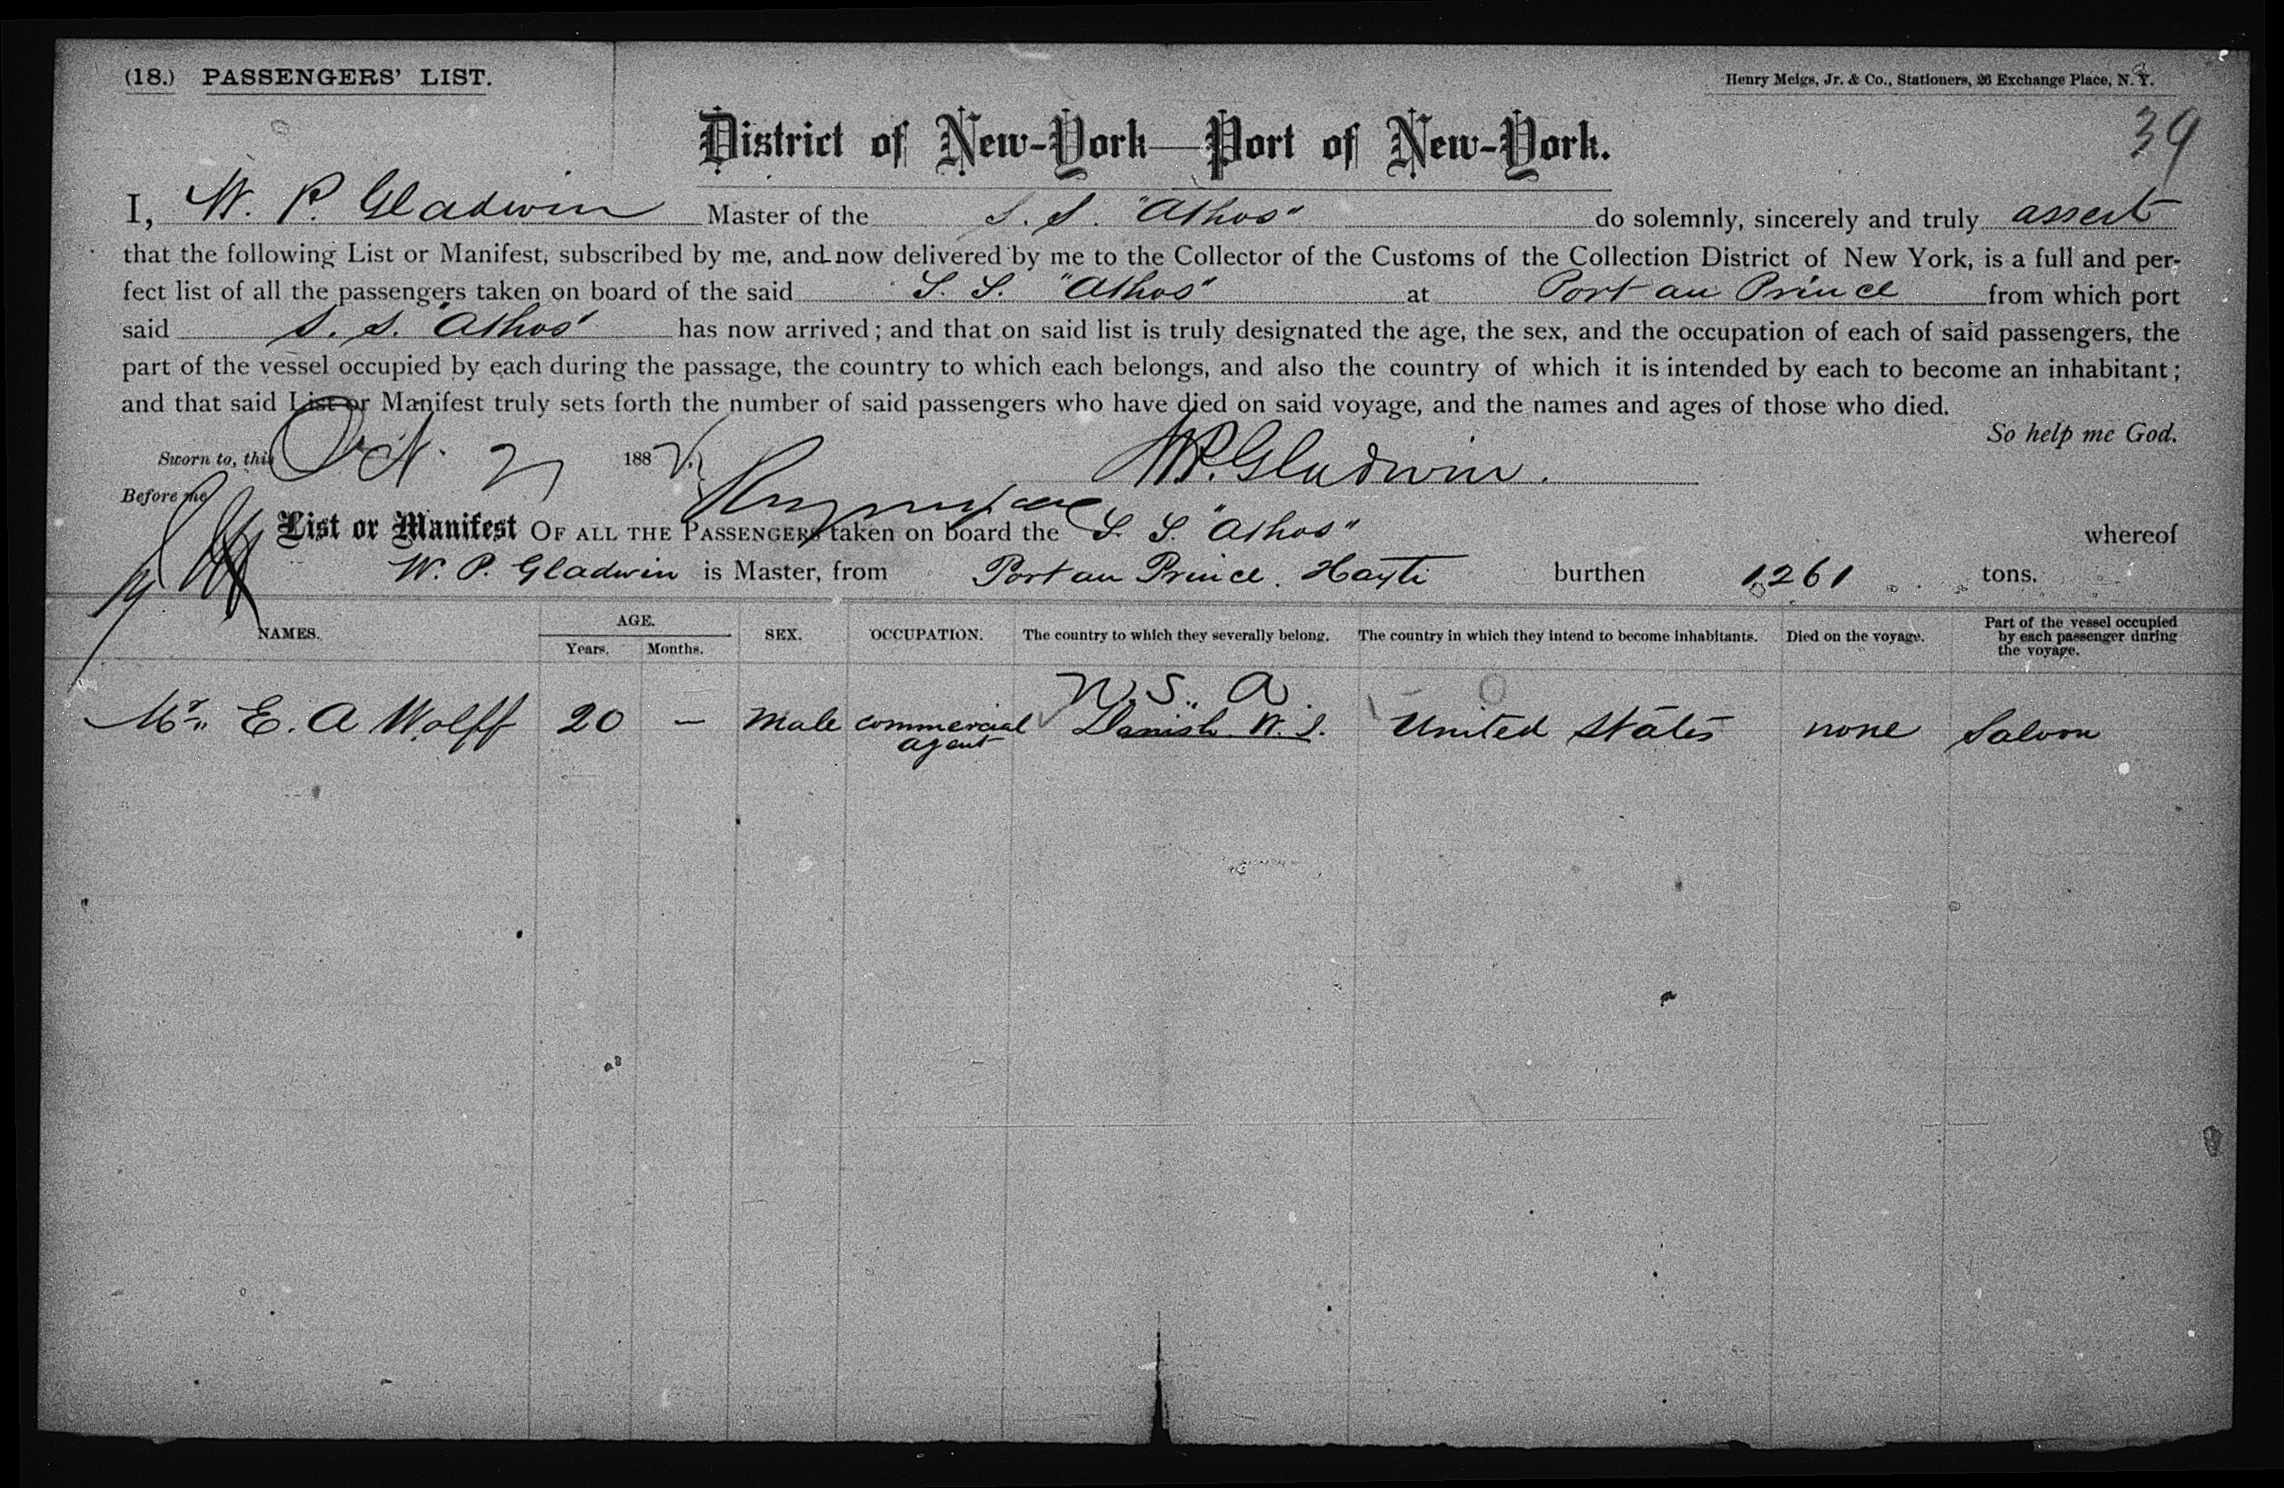 (18.) PASSENGERS' LIST.
Henry Meigs, Jr. & Co., Stationers, 26 Exchange Place, N. Y.
39
District of New-York—Port of New-York.
I, W. P. Gladwin Master of the S. S. "Athos" do solemnly, sincerely and truly assert
that the following List or Manifest, subscribed by me, and now delivered by me to the Collector of the Customs of the Collection District of New York, is a full and per-
fect list of all the passengers taken on board of the said S. S. "Athos" at Port au Prince from which port
said S. S. "Athos" has now arrived; and that on said list is truly designated the age, the sex, and the occupation of each of said passengers, the
part of the vessel occupied by each during the passage, the country to which each belongs, and also the country of which it is intended by each to become an inhabitant;
and that said List or Manifest truly sets forth the number of said passengers who have died on said voyage, and the names and ages of those who died.
So help me God.
Sworn to, this Oct. 2 188 WP. Gladwin.
Before me
List or Manifest OF ALL THE PASSENGERS taken on board the S. S. "Athos" whereof
W. P. Gladwin is Master, from Port au Prince. Hayti burthen 1261 tons.
NAMES. AGE. Years. Months. SEX. OCCUPATION. The country to which they severally belong. The country in which they intend to become inhabitants. Died on the voyage. Part of the vessel occupied by each passenger during the voyage.
U. S. A
Mr. E. A Wolff 20 — Male commercial Danish W. I. United States none Saloon
agent